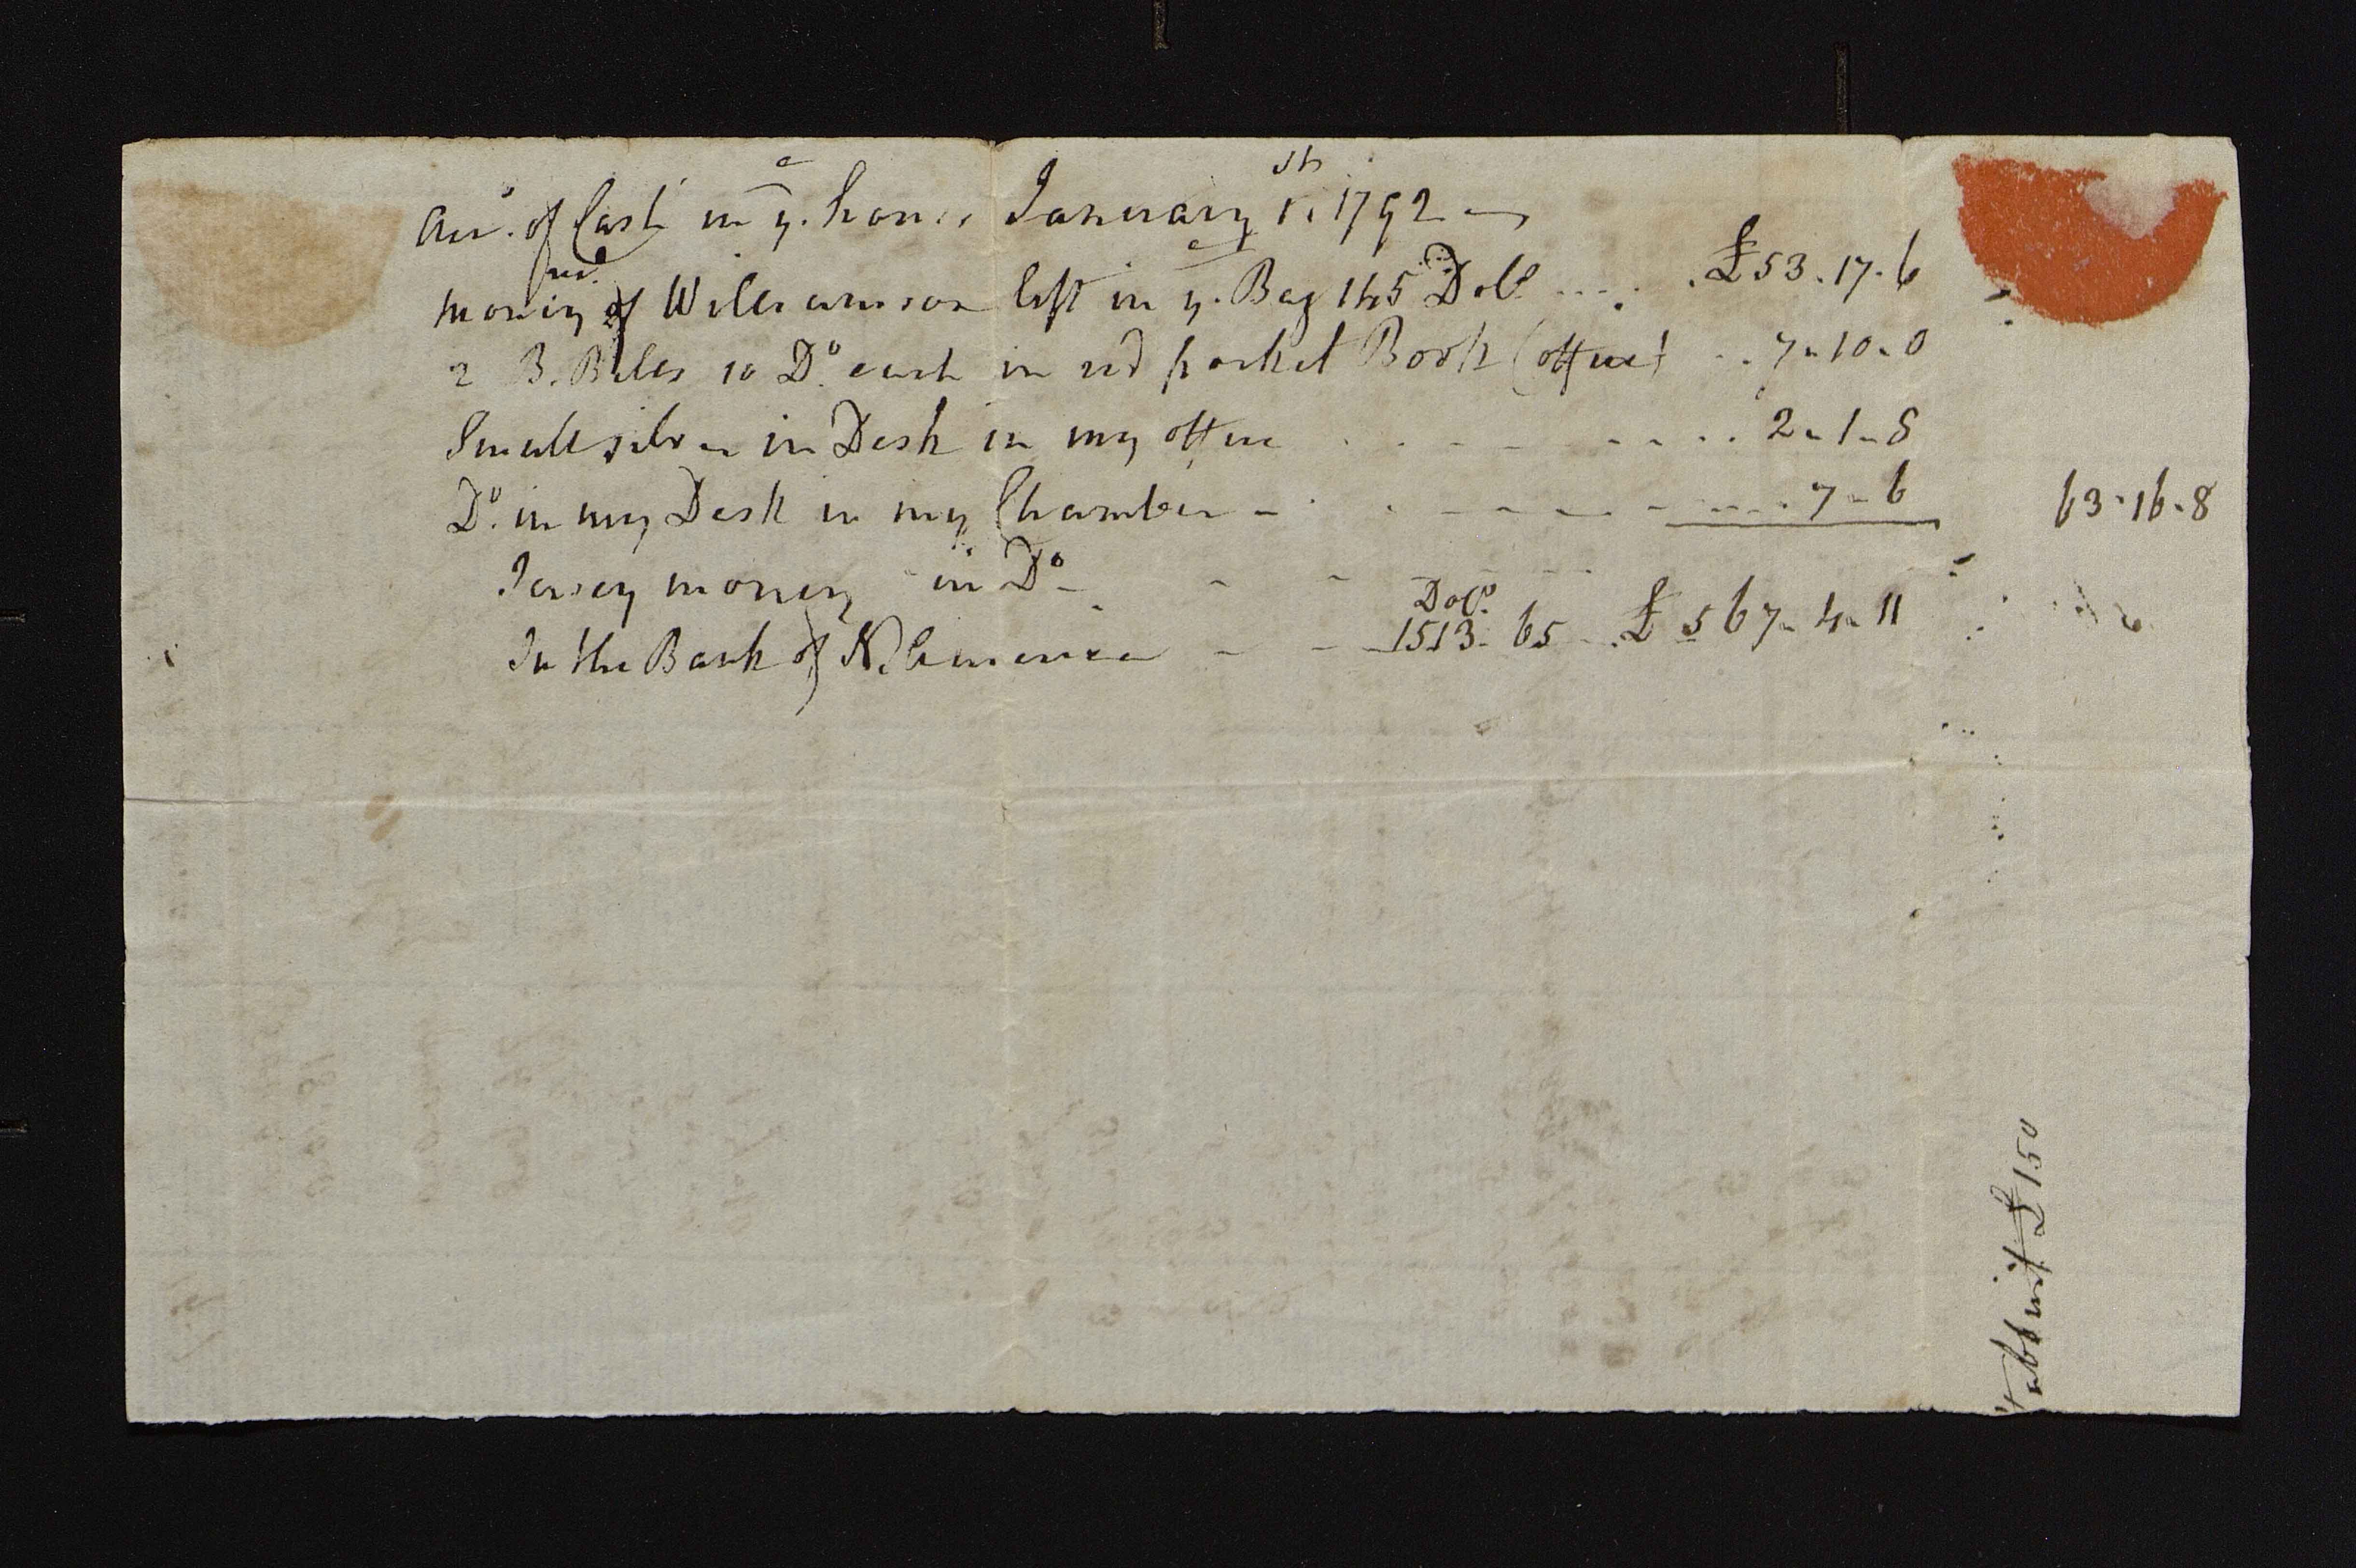 Acco. of Cash in ye. house January 1st. 1792
money recd. of Williamson left in ye. Bag 145 Doll ..... £53.17.6
2 B. Bills 10 Do. each in red pocket Book (office) .. 7-10-0
Small silver in Desk in my office ........ 2-1-8
Do. in my Desk in my Chamber - ........ 7-6 63.16.8
Jersey money in Do -
In the Bank of N. America - - - Dolls. 1513.65 .. £567-4-11
£150